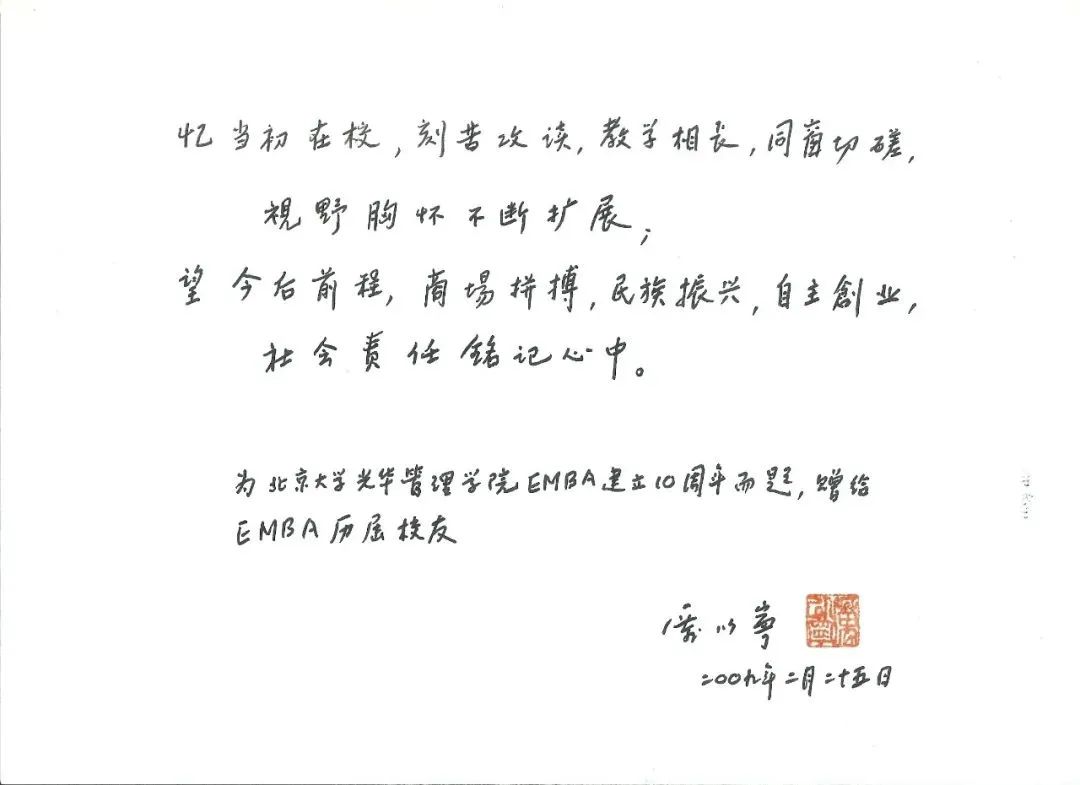 忆当初在校，刻苦攻读，教学相长，同窗切磋，
視野胸怀不断扩展；
望今后前程，商場拼搏，民族振兴，自主創业，
社会责任铭记心中。
为北京大学光华管理学院EMBA建立10周年而题，赠给
EMBA历届校友
厲以寧
二00九年二月二十五日